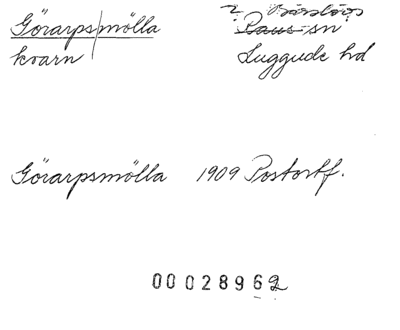 Görarps/mölla
kvarn
Raus sn
Luggude hd
Görarpsmölla 1909 Postortf.
00028962